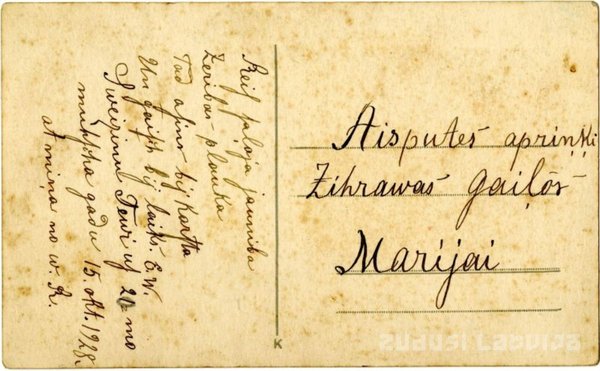 Reiſ ſaloja jauniba
Zeribas plauka
Tad aſins bij karſta
Un gaiſs bij laiks. E.W.
Sweizinu Tewi uſ 20 mo
muhſcha gadu 15. okt. 1928.
atmiņa no W. R.
Aisputes apriņķi
Zihrawas Gaiļos
Marijai
K
ZUDUSI LATVIJA